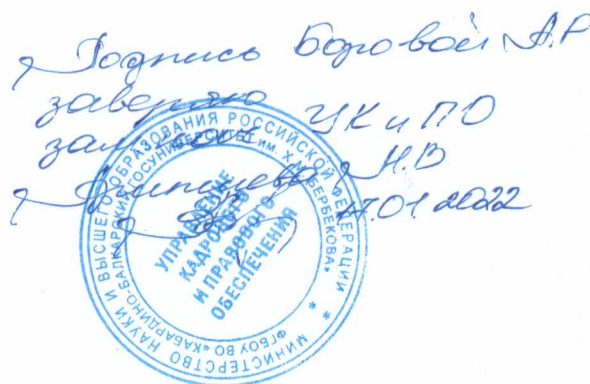 Подпись Боровой А.Р
заверяю
зам. УК и ПО
Н.В
17.01.2022
МИНИСТЕРСТВО НАУКИ И ВЫСШЕГО ОБРАЗОВАНИЯ РОССИЙСКОЙ ФЕДЕРАЦИИ
ФГБОУ ВО «КАБАРДИНО-БАЛКАРСКИЙ ГОСУНИВЕРСИТЕТ им. Х.М. БЕРБЕКОВА»
УПРАВЛЕНИЕ
КАДРОВОГО
И ПРАВОВОГО
ОБЕСПЕЧЕНИЯ